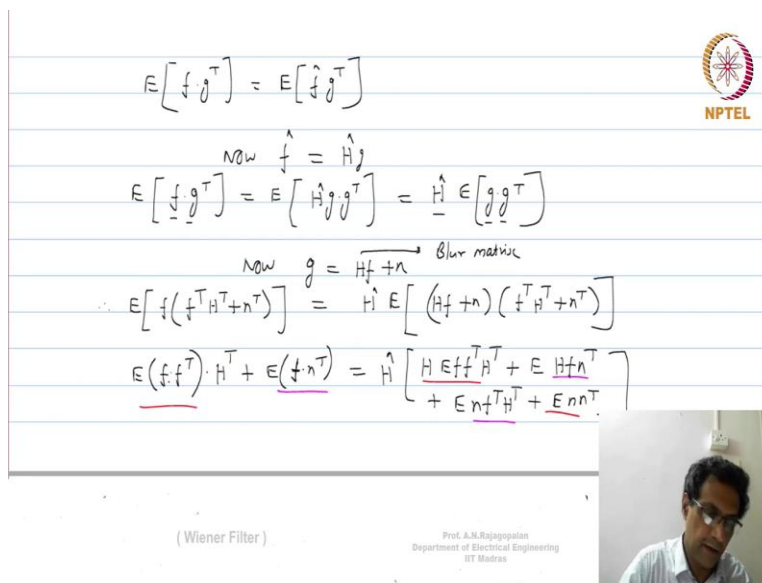 E[f·gᵀ] = E[f̂ gᵀ]
NPTEL
Now f̂ = Ĥg
E[f·gᵀ] = E[Ĥg·gᵀ] = Ĥ E[g·gᵀ]
Now g = Hf + n → Blur matrix
∴ E[f(fᵀHᵀ+nᵀ)] = Ĥ E[(Hf+n)(fᵀHᵀ+nᵀ)]
E(f·fᵀ)·Hᵀ + E(f·nᵀ) = Ĥ[H EffᵀHᵀ + E Hfnᵀ
+ E nfᵀHᵀ + E nnᵀ]
( Wiener Filter )
Prof. A.N.Rajagopalan
Department of Electrical Engineering
IIT Madras